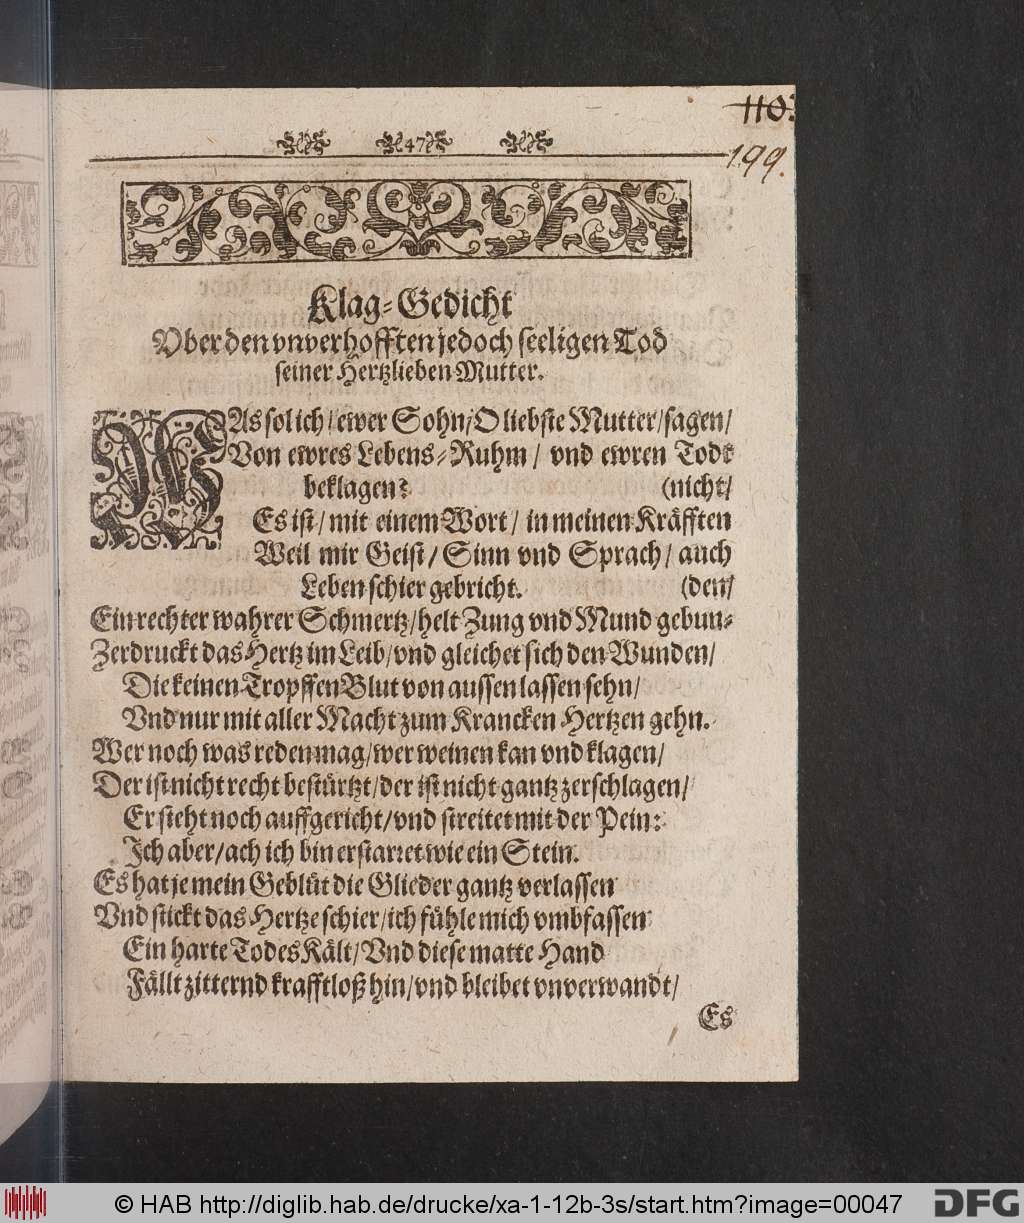 110.
47
199.
Klag-Gedicht
Vber den vnverhofften jedoch seeligen Tod
seiner Hertzlieben Mutter.
WAs sol ich / ewer Sohn / O liebste Mutter / sagen /
Von ewres Lebens-Ruhm / vnd ewren Todt
beklagen? (nicht /
Es ist / mit einem Wort / in meinen Kräfften
Weil mir Geist / Sinn vnd Sprach / auch
Leben schier gebricht. (den /
Ein rechter wahrer Schmertz / helt Zung vnd Mund gebun-
Zerdruckt das Hertz im Leib / vnd gleichet sich den Wunden /
Die keinen Tropffen Blut von aussen lassen sehn /
Vnd nur mit aller Macht zum Krancken Hertzen gehn.
Wer noch was reden mag / wer weinen kan vnd klagen /
Der ist nicht recht bestürtzt / der ist nicht gantz zerschlagen /
Er steht noch auffgericht / vnd streitet mit der Pein:
Ich aber / ach ich bin erstarret wie ein Stein.
Es hat je mein Geblüt die Glieder gantz verlassen
Vnd stickt das Hertze schier / ich fühle mich vmbfassen
Ein harte Todes Kält / Vnd diese matte Hand
Fällt zitternd krafftloß hin / vnd bleibet vnverwandt /
Es
© HAB http://diglib.hab.de/drucke/xa-1-12b-3s/start.htm?image=00047
DFG